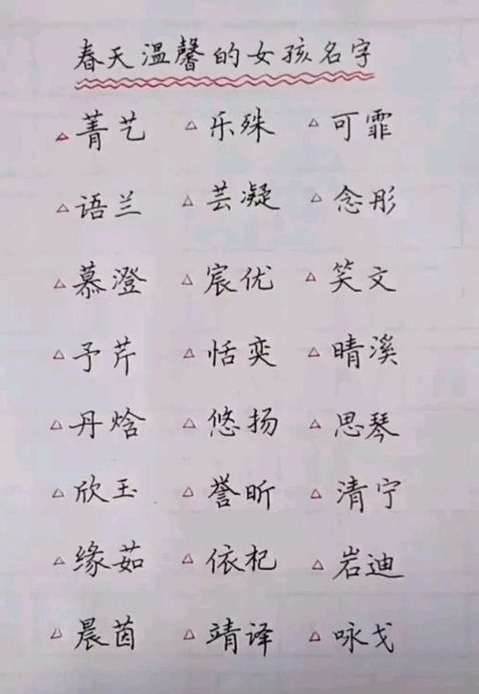 春天温馨的女孩名字
△菁艺 △乐殊 △可霏
△语兰 △芸凝 △念彤
△慕澄 △宸优 △笑文
△予芹 △恬奕 △晴溪
△丹焓 △悠扬 △思琴
△欣玉 △誉昕 △清宁
△缘茹 △依杞 △岩迪
△晨茵 △靖译 △咏戈